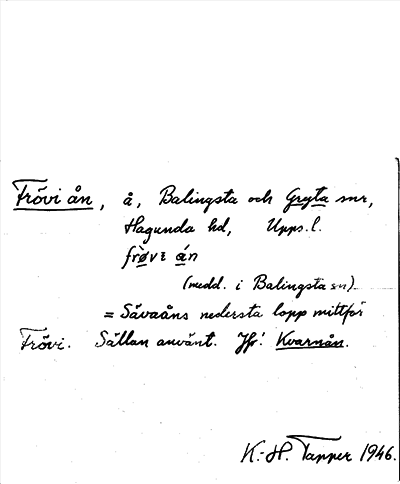 Frövi ån, å, Balingsta och Gryta snr,
Hagunda hd, Upps. l.
frø̀vɛ án
(medd. i Balingsta sn).
= Sävaåns nedersta lopp mittför
Frövi. Sällan använt. Jfr! Kvarnån.
K.-H. Tapper 1946.